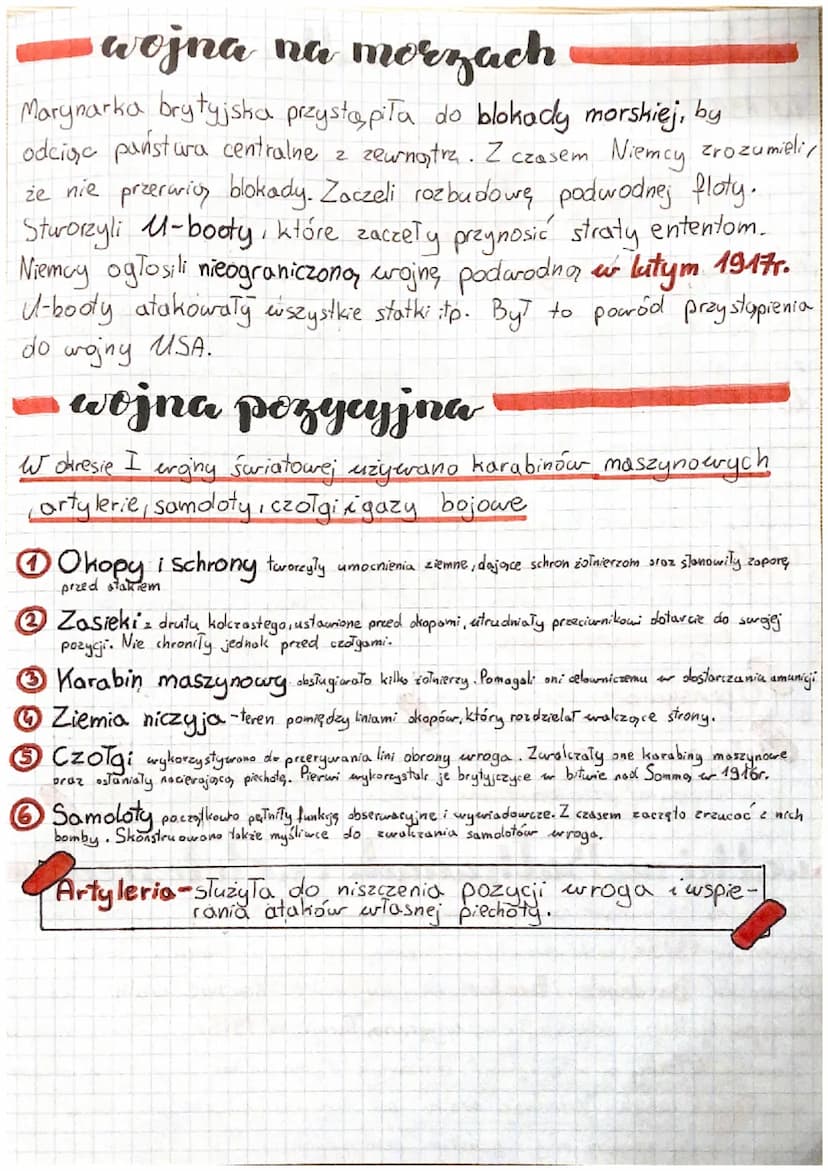 wojna na morzach
Marynarka brytyjska przystąpiła do blokady morskiej, by
odciąc państwa centralne z zewnątrz. Z czasem Niemcy zrozumieli,
że nie przerwią blokady. Zaczeli rozbudowę podwodnej floty.
Stworzyli U-booty, które zaczeły przynosić straty ententom.
Niemcy ogłosili nieograniczoną wojnę podwodną w lutym 1917r.
U-booty atakowały wszystkie statki itp. Był to powód przystąpienia
do wojny USA.
wojna pozycyjna
W okresie I wojny światowej używano karabinów maszynowych
, artylerie, samoloty, czołgi i gazy bojowe
1 Okopy i schrony tworzyły umocnienia ziemne, dające schron żołnierzom oraz stanowiły zaporę
przed atakiem
2 Zasieki z drutu kolczastego, ustawione przed okopami, utrudniały przeciwnikowi dotarcie do swojej
pozycji. Nie chroniły jednak przed czołgami.
3 Karabin maszynowy obsługiwało kilko żołnierzy. Pomagali oni celowniczemu w dostarczaniu amunicji
4 Ziemia niczyja - teren pomiędzy liniami okopów, który rozdzielał walczące strony.
5 Czołgi wykorzystywano do przerywania lini obrony wroga. Zwalczały one karabiny maszynowe
oraz osłaniały nacierającą piechotę. Pierwsi wykorzystali je brytyjczycy w bitwie nad Sommą w 1916r.
6 Samoloty początkowo pełniły funkcję obserwacyjne i wywiadowcze. Z czasem zaczęto zrzucać z nich
bomby. Skonstruowano także myśliwce do zwalczania samolotów wroga.
Artyleria - służyła do niszczenia pozycji wroga i wspie-
rania ataków własnej piechoty.